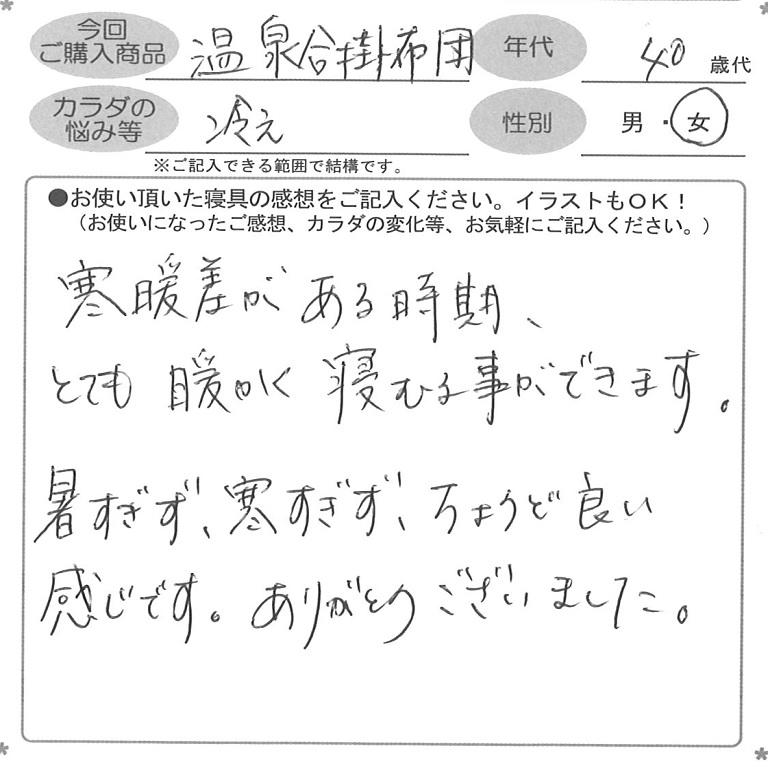 今回
ご購入商品 温泉合掛布団 年代 40 歳代
カラダの
悩み等 冷え 性別 男・女
※ご記入できる範囲で結構です。
●お使い頂いた寝具の感想をご記入ください。イラストもOK！
（お使いになったご感想、カラダの変化等、お気軽にご記入ください。）
寒暖差がある時期、
とても暖かく寝むる事ができます。
暑すぎず、寒すぎず、ちょうど良い
感じです。ありがとうございました。